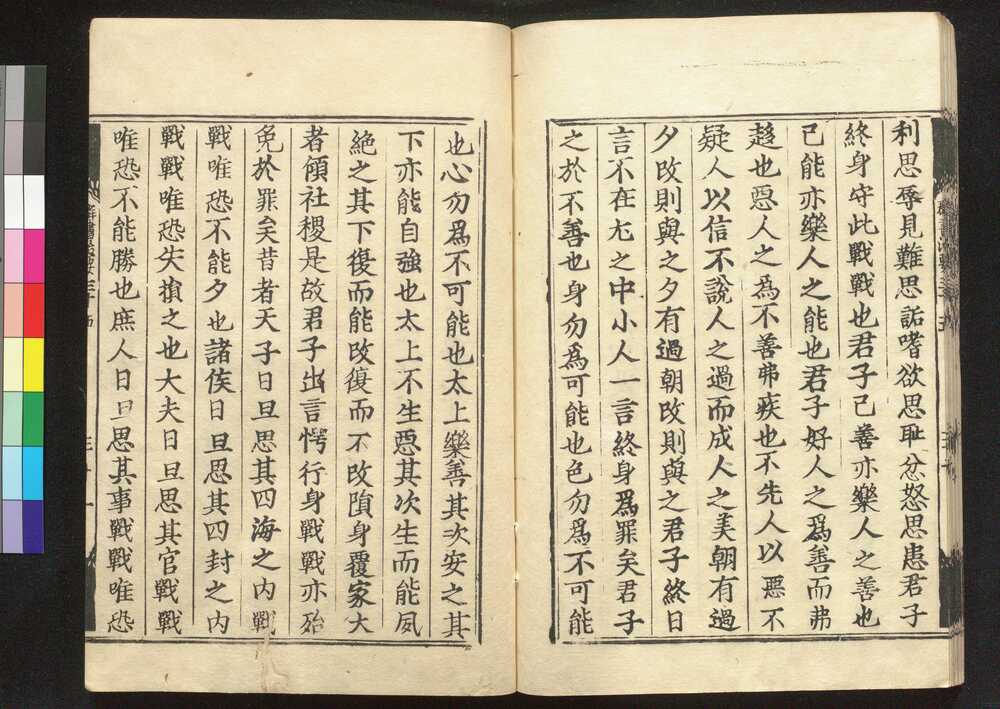 利思辱見難思詬嗜欲思耻忿怒思患君子
終身守此戰戰也君子己善亦樂人之善也
己能亦樂人之能也君子好人之爲善而弗
趍也惡人之為不善弗疾也不先人以惡不
疑人以信不說人之過而成人之美朝有過
夕改則與之夕有過朝改則與之君子終日
言不在尤之中小人一言終身爲罪矣君子
之於不善也身勿爲可能也色勿爲不可能
也心勿爲不可能也太上樂善其次安之其
下亦能自強也太上不生惡其次生而能夙
絶之其下復而能改復而不改隕身覆家大
者傾社稷是故君子出言愕行身戰戰亦殆
免於罪矣昔者天子日旦思其四海之内戰
戰唯恐不能夕也諸侯日旦思其四封之内
戰戰唯恐失損之也大夫日旦思其官戰戰
唯恐不能勝也庶人日旦思其事戰戰唯恐